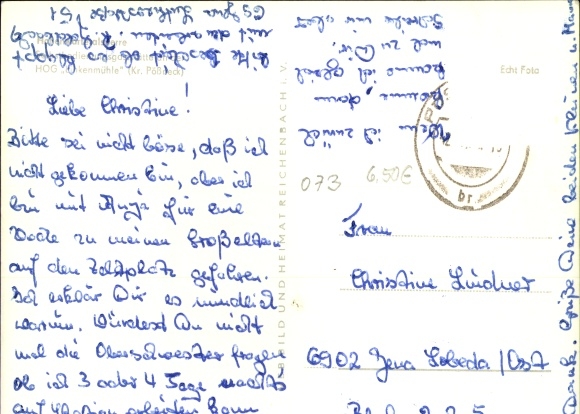 Liebe Christine!
Bitte sei nicht böse, daß ich
nicht gekommen bin, aber ich
bin mit Anja für eine
Woche zu meinen Großeltern
auf den Zeltplatz gefahren.
Ich erklär Dir es mündlich
warum. Würdest Du nicht
mal die Oberschwester fragen
ob ich 3 oder 4 Tage nachts
auf Station arbeiten kann
Wenn ich zurück
komme, dann
komme ich gleich
mal zu Dir.
Schreibe mir aber
bitte Bescheid, ob es klappt
69 Jena
Dank. Grüße Deine beiden Kleinen u. Mann
HOG
(Kr. Pößneck)
BILD UND HEIMAT REICHENBACH i. V.
Echt Foto
073 6.50€
Frau
Christine Lindner
6902 Jena Lobeda/Ost